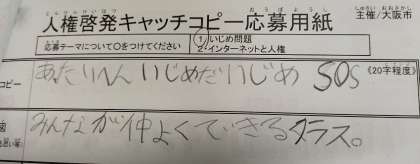 人権啓発キャッチコピー応募用紙 主催/大阪市
応募テーマについて○をつけてください 1.いじめ問題
2.インターネットと人権
コピー あたりへん いじめだいじめ SOS 《20字程度》
みんなが仲よくできるクラス。